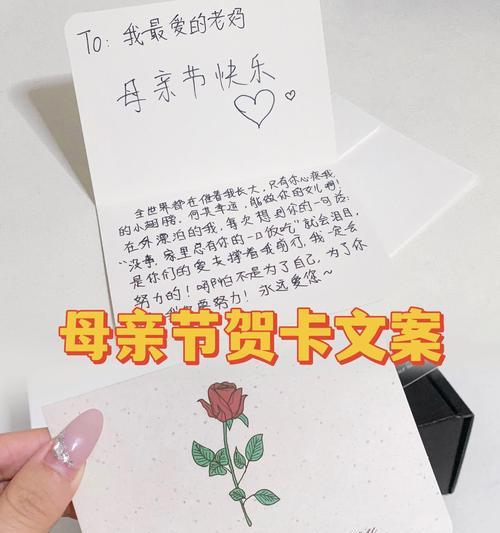 To：我最爱的老妈
母亲节快乐
全世界都在催着我长大，只有你心疼我
的小翅膀，何其幸运，能做你的女儿啊！
在外漂泊的我，每次想到你的一句话：
“没事，家里总有你的一口饭吃”就会泪目，
是你们的爱支撑着我前行，我一定会
努力的！哪怕不是为了自己，为了你
要努力！永远爱您~
母亲节贺卡文案